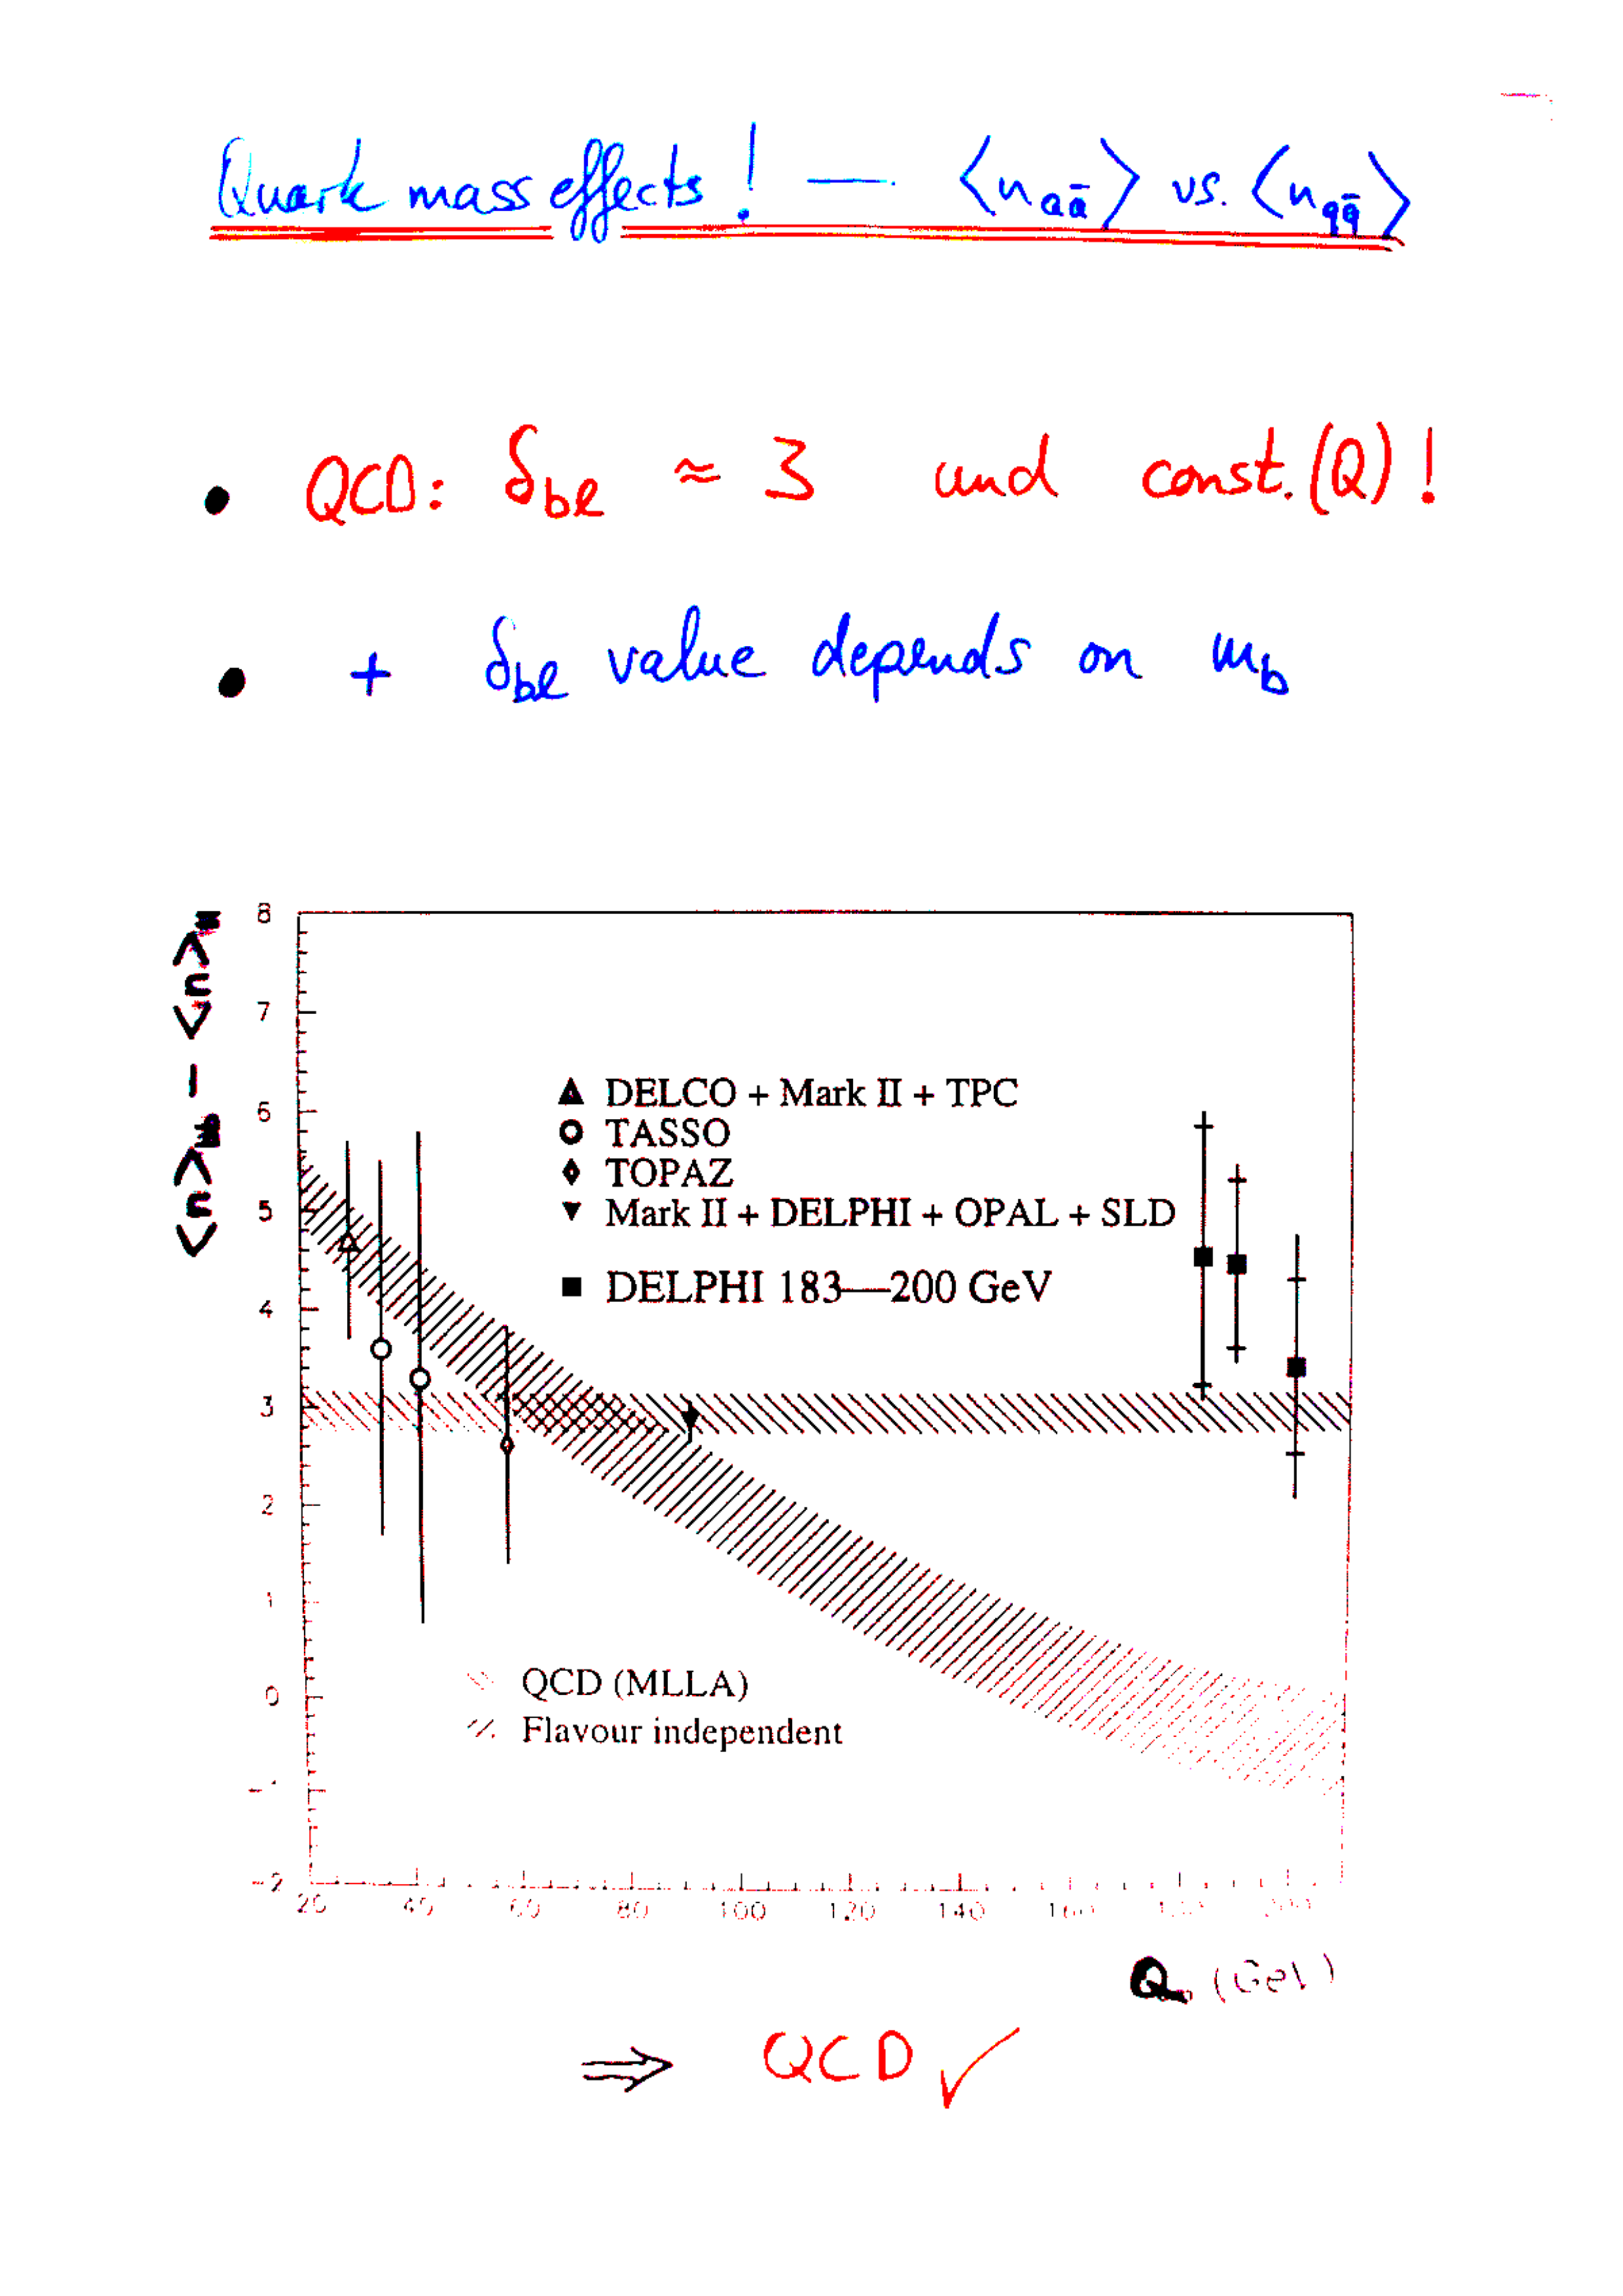 Quark mass effects! — ⟨n_QQ̄⟩ vs. ⟨n_qq̄⟩
• QCD: δ_bl ≈ 3 und const.(Q)!
• + δ_bl value depends on m_b
8
7
6
5
4
3
2
1
0
-1
-2
▲ DELCO + Mark II + TPC
○ TASSO
◊ TOPAZ
▼ Mark II + DELPHI + OPAL + SLD
■ DELPHI 183—200 GeV
QCD (MLLA)
Flavour independent
20 40 60 80 100 120 140 160
Q (GeV)
⇒ QCD ✓